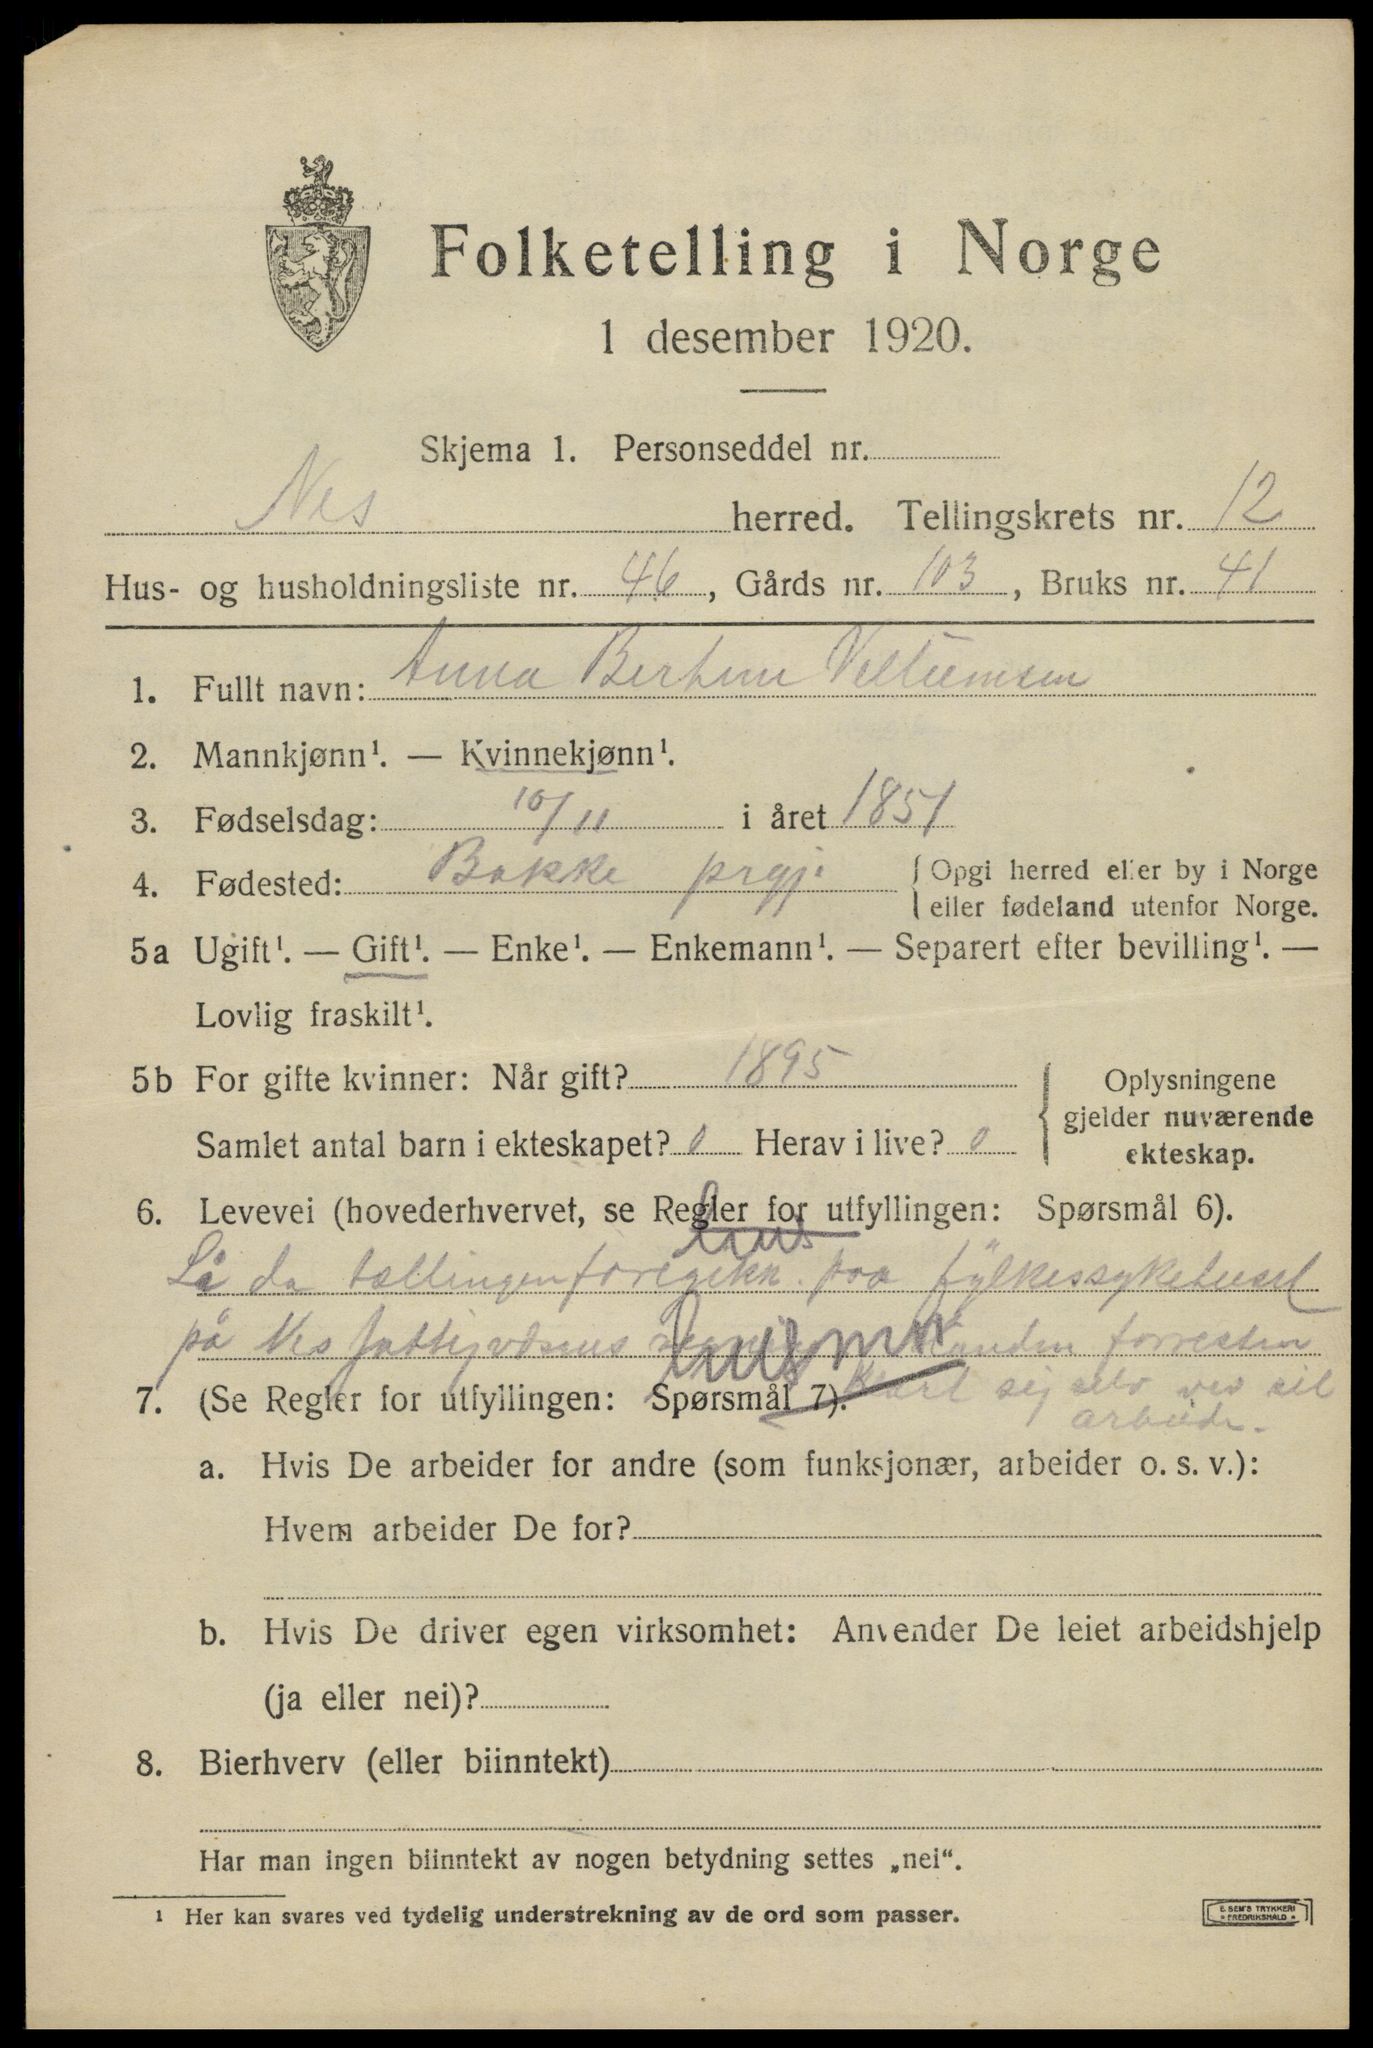 Folketelling i Norge
1 desember 1920.
Skjema 1. Personseddel nr.
Nes herred. Tellingskrets nr. 12
Hus- og husholdningsliste nr. 46, Gårds nr. 103, Bruks nr. 41
1. Fullt navn: Anna
2. Mannkjønn¹. — Kvinnekjønn¹.
3. Fødselsdag: 10/11 i året 1851
4. Fødested: Bakke prgj. { Opgi herred eller by i Norge
eller fødeland utenfor Norge.
5a Ugift¹. — Gift¹. — Enke¹. — Enkemann¹. — Separert efter bevilling¹. —
Lovlig fraskilt¹.
5b For gifte kvinner: Når gift? 1895 { Oplysningene
gjelder nuværende
ekteskap.
Samlet antal barn i ekteskapet? 0 Herav i live? 0
6. Levevei (hovederhvervet, se Regler for utfyllingen: Spørsmål 6).
Lå da tællingen foregikk paa fylkessykehuset
på Nes fattigvæsens forresten
7. (Se Regler for utfyllingen: Spørsmål 7). sig selv ved sit
arbeide.
a. Hvis De arbeider for andre (som funksjonær, arbeider o. s. v.):
Hvem arbeider De for?
b. Hvis De driver egen virksomhet: Anvender De leiet arbeidshjelp
(ja eller nei)?
8. Bierhverv (eller biinntekt)
Har man ingen biinntekt av nogen betydning settes „nei“.
¹ Her kan svares ved tydelig understrekning av de ord som passer.
E. SEM'S TRYKKERI
FREDRIKSHALD